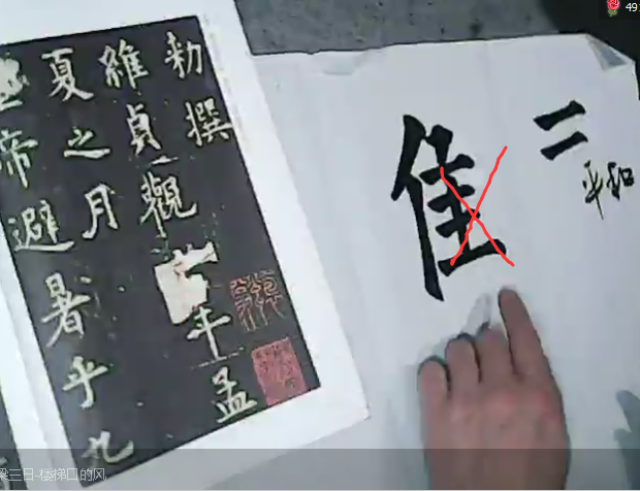 49
二
平和
佳
勅撰
維貞觀年孟
夏之月
帝避暑乎九
梁三日-楼梯口的风